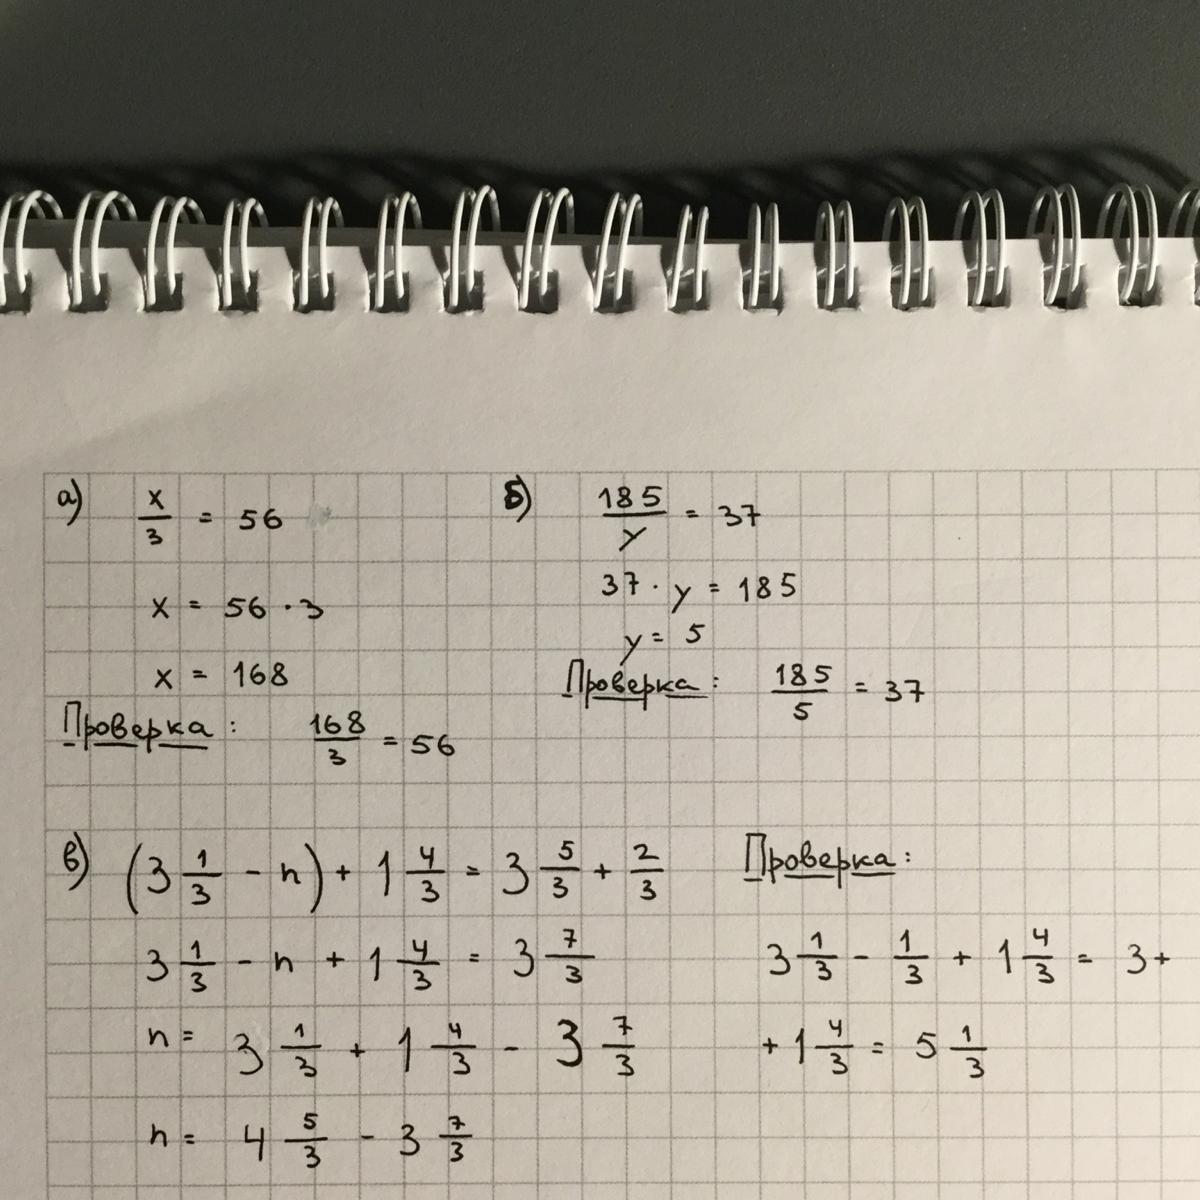 а) x/3 = 56
x = 56 · 3
x = 168
Проверка: 168/3 = 56
б) 185/y = 37
37 · y = 185
y = 5
Проверка: 185/5 = 37
в) (3 1/3 - n) + 1 4/3 = 3 5/3 + 2/3
3 1/3 - n + 1 4/3 = 3 7/3
n = 3 1/3 + 1 4/3 - 3 7/3
n = 4 5/3 - 3 7/3
Проверка:
3 1/3 - 1/3 + 1 4/3 = 3 +
+ 1 4/3 = 5 1/3